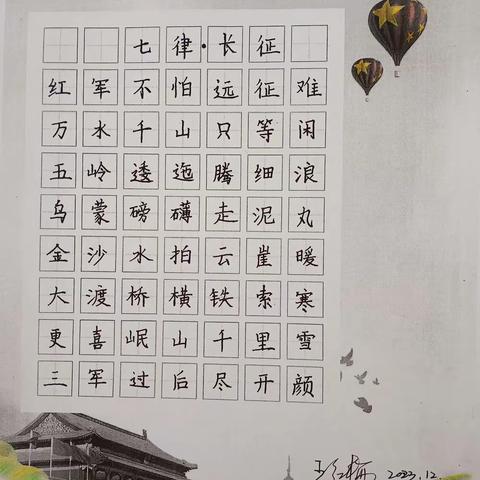 七律·长征
红军不怕远征难
万水千山只等闲
五岭逶迤腾细浪
乌蒙磅礴走泥丸
金沙水拍云崖暖
大渡桥横铁索寒
更喜岷山千里雪
三军过后尽开颜
王红梅 2023.12.